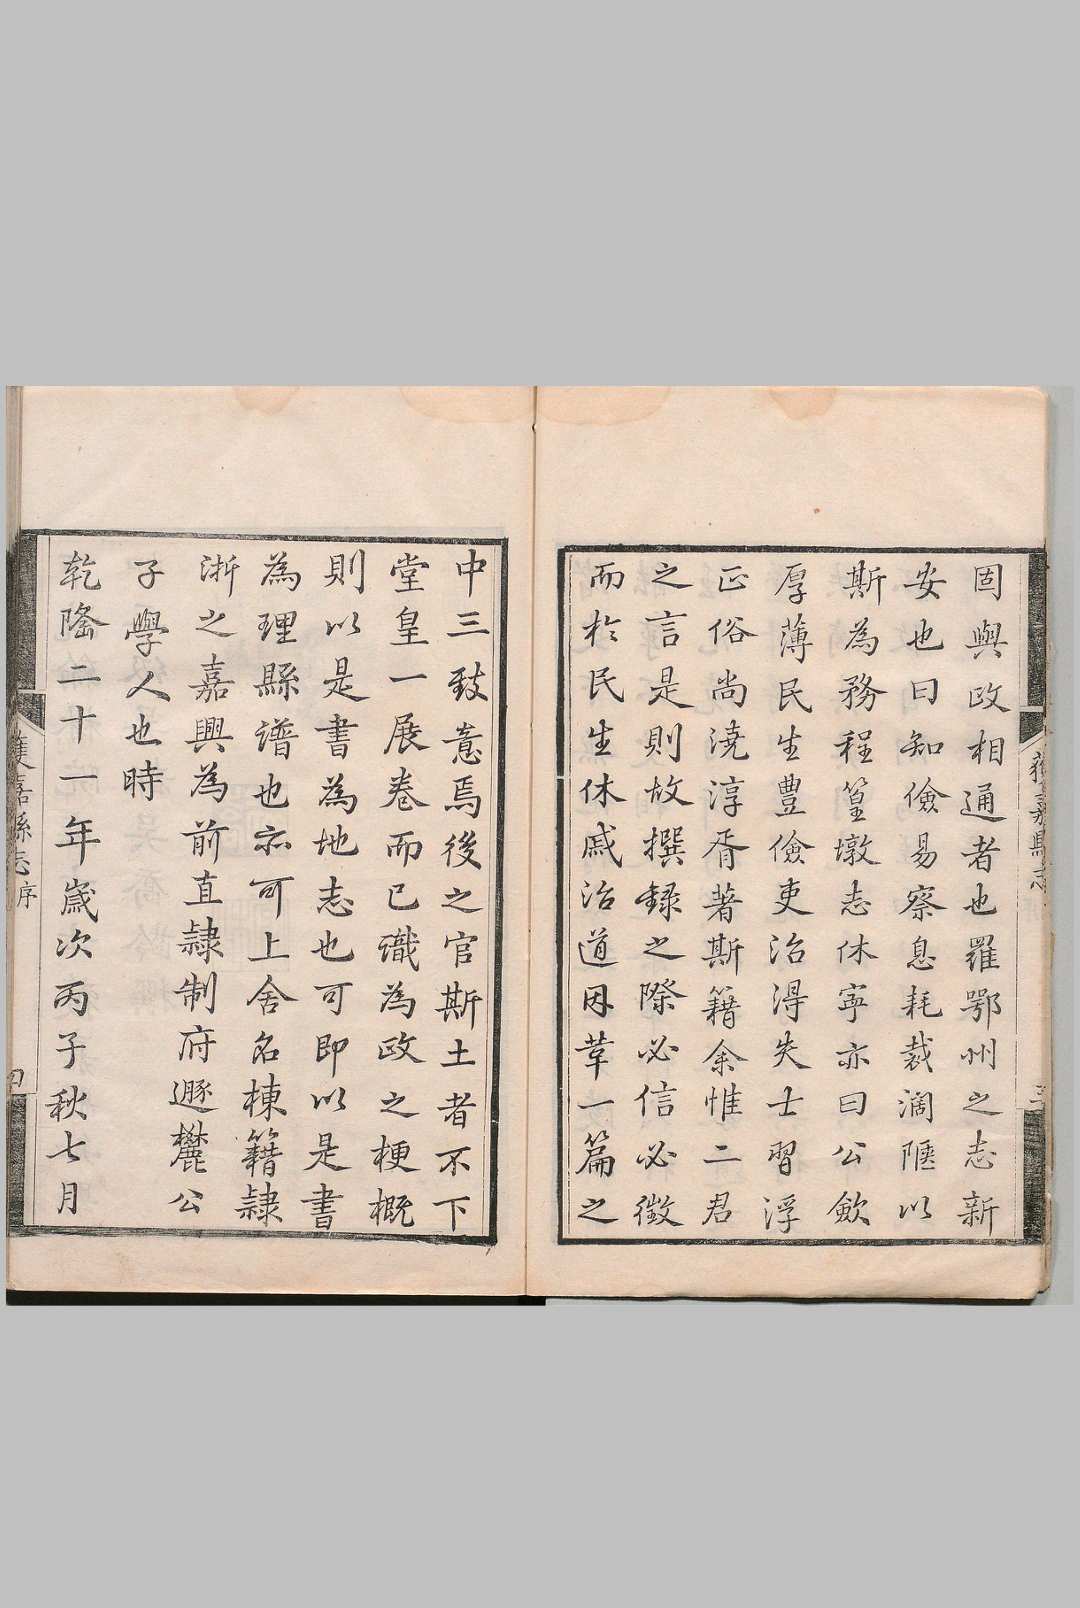 固與政相通者也羅鄂州之志新
安也曰知儉易察息耗裁濶隘以
斯為務程篁墩志休寧亦曰公歛
厚薄民生豐儉吏治得失士習浮
正俗尚澆淳胥著斯籍余惟二君
之言是則故撰録之際必信必徵
而於民生休戚治道因革一篇之
中三致意焉後之官斯土者不下
堂皇一展卷而已識為政之梗概
則以是書為地志也可即以是書
為理縣譜也亦可上舍名棟籍隷
浙之嘉興為前直隷制府遯麓公
子學人也時
乾隆二十一年歲次丙子秋七月
獲嘉縣志
三
獲嘉縣志
序
四